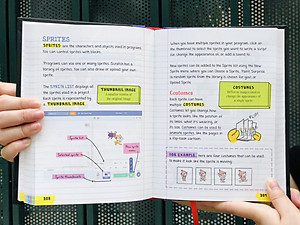 SPRITES
SPRITES are the characters and objects used in programs.
You can control sprites with blocks.
Programs can use one or many sprites. Scratch has a
library of sprites. You can also draw or upload your own
sprite.
The SPRITE LIST displays all
the sprites used in a project.
Each sprite is represented by
a THUMBNAIL IMAGE
THUMBNAIL IMAGE
A smaller version of
the original image
Sprite list
Selected sprite
Sprite thumbnails
When you have multiple sprites in your program, click on
the thumbnail to select the sprite you want to write a script
for, change the appearance of, or add a sound to.
New sprites can be added to the Sprite list using the New
Sprite menu where you can Choose a Sprite, Paint, Surprise
a random sprite from the library is chosen for you), or
Upload Sprite.
Costumes
Each sprite can have
multiple COSTUMES.
Costumes let you change how
a sprite looks, like the position of
its body, what it's wearing, or
its size. Costumes can be used to
animate sprites, like the pages of
a flip-book cartoon.
COSTUMES
FOR EXAMPLE, here are four costumes that can be used
to make it look like the sprite is moving.